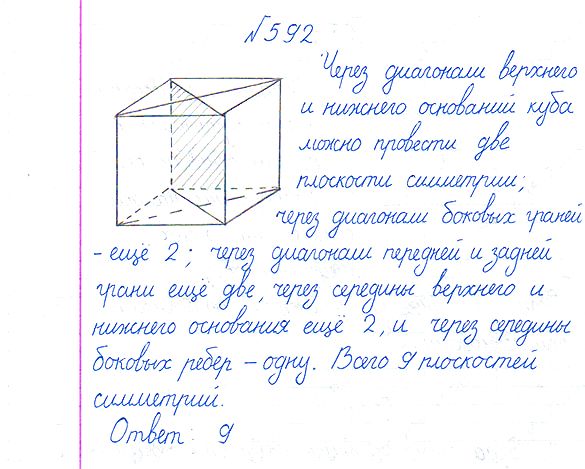 №592
Через диагонали верхнего
и нижнего оснований куба
можно провести две
плоскости симметрии;
через диагонали боковых граней
- ещё 2; через диагонали передней и задней
грани ещё две, через середины верхнего и
нижнего основания ещё 2, и через середины
боковых ребер – одну. Всего 9 плоскостей
симметрий.
Ответ: 9